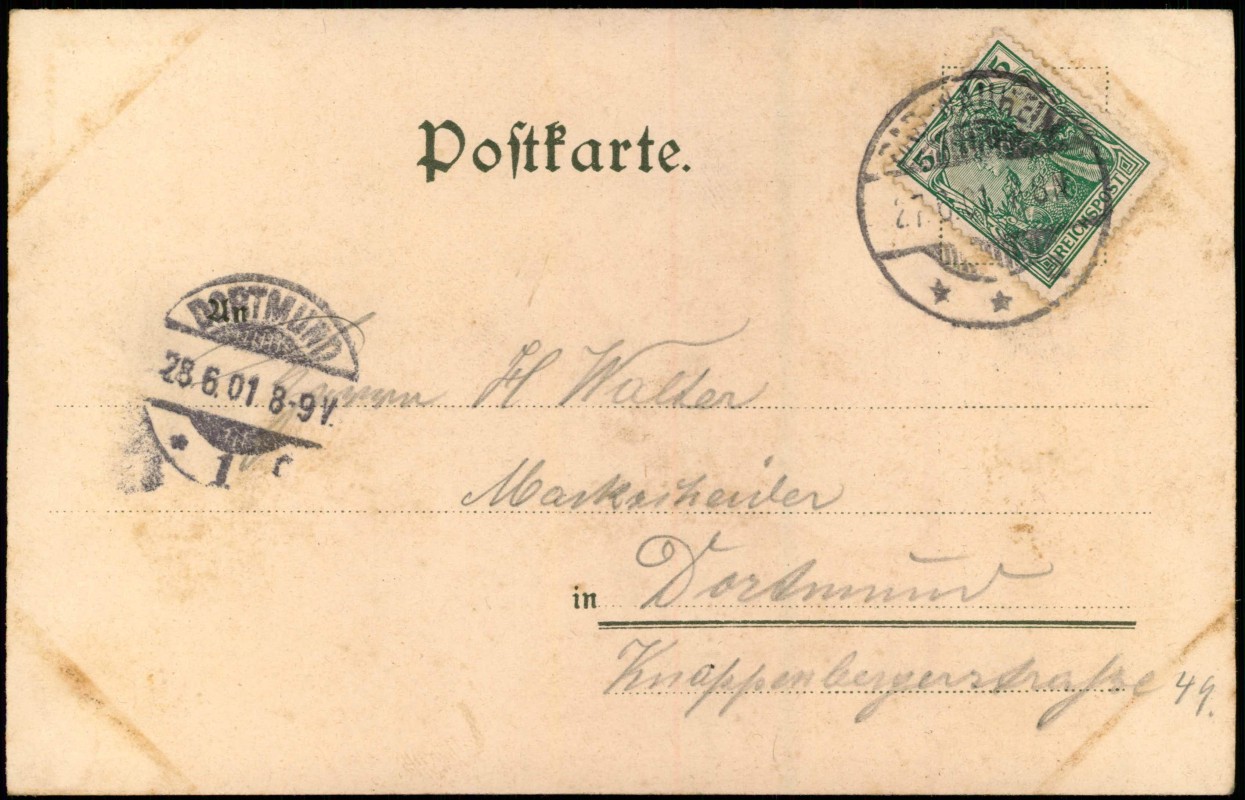 Postkarte.
5 5
REICHSPOST
BAD-NAUHEIM
An
DORTMUND
28.6.01 8-9V.
1 c
Herrn H Walter
Markscheider
in Dortmund
Knappenbergerstraße 49.